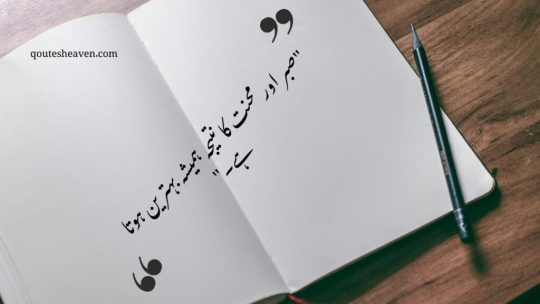 qoutesheaven.com
"صبر اور محنت کا نتیجہ ہمیشہ بہترین ہوتا
ہے۔"